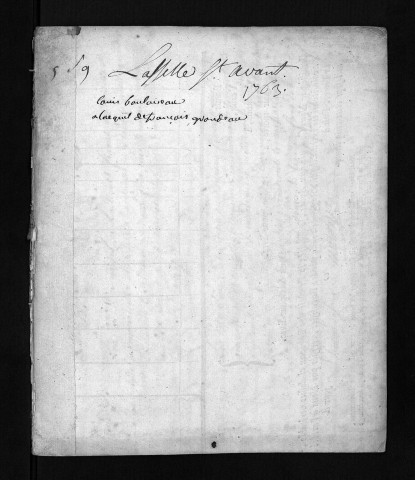 Laselle St. avant.
1763.
Louis boulaiseau
a lacquit de françois grondeau